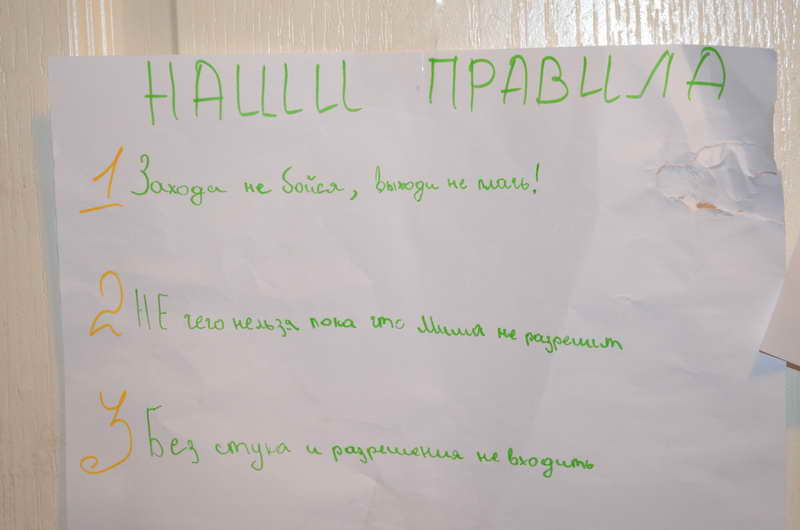 НАШИ ПРАВИЛА
1 Заходи не бойся, выходи не плачь!
2 НЕ чего нельзя пока что Миша не разрешит
3 Без стука и разрешения не входить